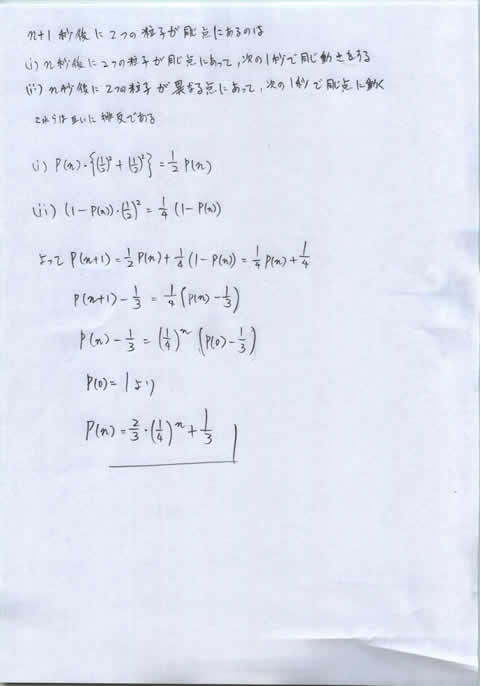 n+1秒後に2つの粒子が同じ点にあるのは
(i) n秒後に2つの粒子が同じ点にあって、次の1秒で同じ動きをする
(ii) n秒後に2つの粒子が異なる点にあって、次の1秒で同じ点に動く
これらは互いに排反である
(i) P(n)・{(1/2)²+(1/2)²}=1/2 P(n)
(ii) (1-P(n))・(1/2)²=1/4 (1-P(n))
よって P(n+1)=1/2 P(n)+1/4 (1-P(n))=1/4 P(n)+1/4
P(n+1)-1/3=1/4 (P(n)-1/3)
P(n)-1/3=(1/4)ⁿ (P(0)-1/3)
P(0)=1より
P(n)=2/3・(1/4)ⁿ+1/3